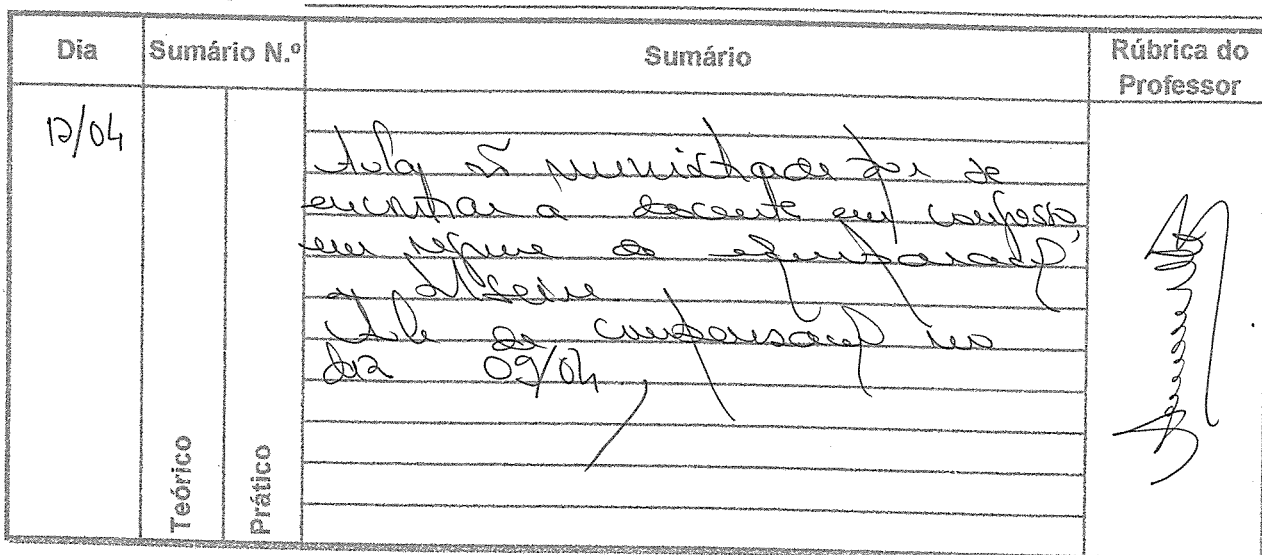 Dia
Sumário N.º
Sumário
Rúbrica do
Professor
12/04
Aula não ministrada por se
encontrar a docente em congresso
em regime de equiparação
a bolseiro
Aula de compensação no
dia 09/04
Teórico
Prático